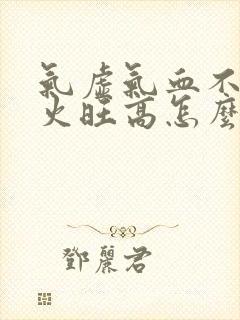 氣虛氣血不
火旺高怎麼
鄧麗君